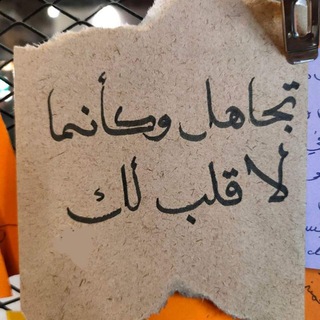 تجاهل وكأنما
لا قلب لك